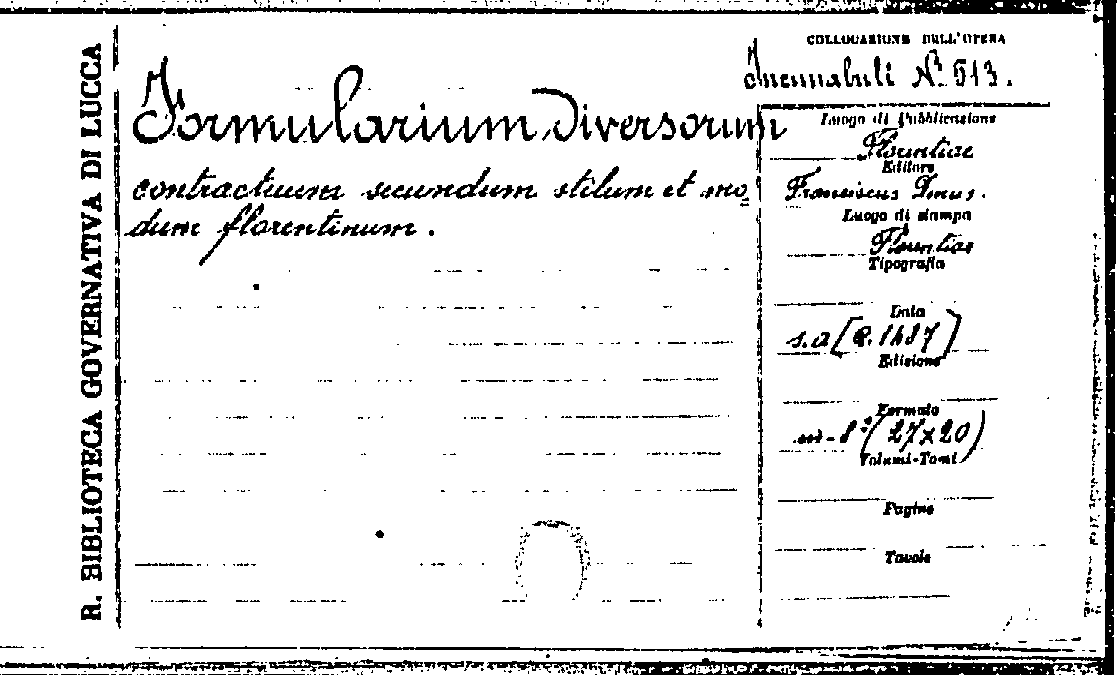 R. BIBLIOTECA GOVERNATIVA DI LUCCA
Formularium Diversorum
contractuum secundum stilum et mo
dum florentinum.
COLLOCAZIONE DELL'OPERA
Incunabuli N.º 513.
Luogo di Pubblicazione
Florentiae
Editore
Franciscus Dinus.
Luogo di stampa
Florentiae
Tipografia
Data
s.a [c. 1487]
Edizione
Formato
in-8º (27x20)
Volumi-Tomi
Pagine
Tavole